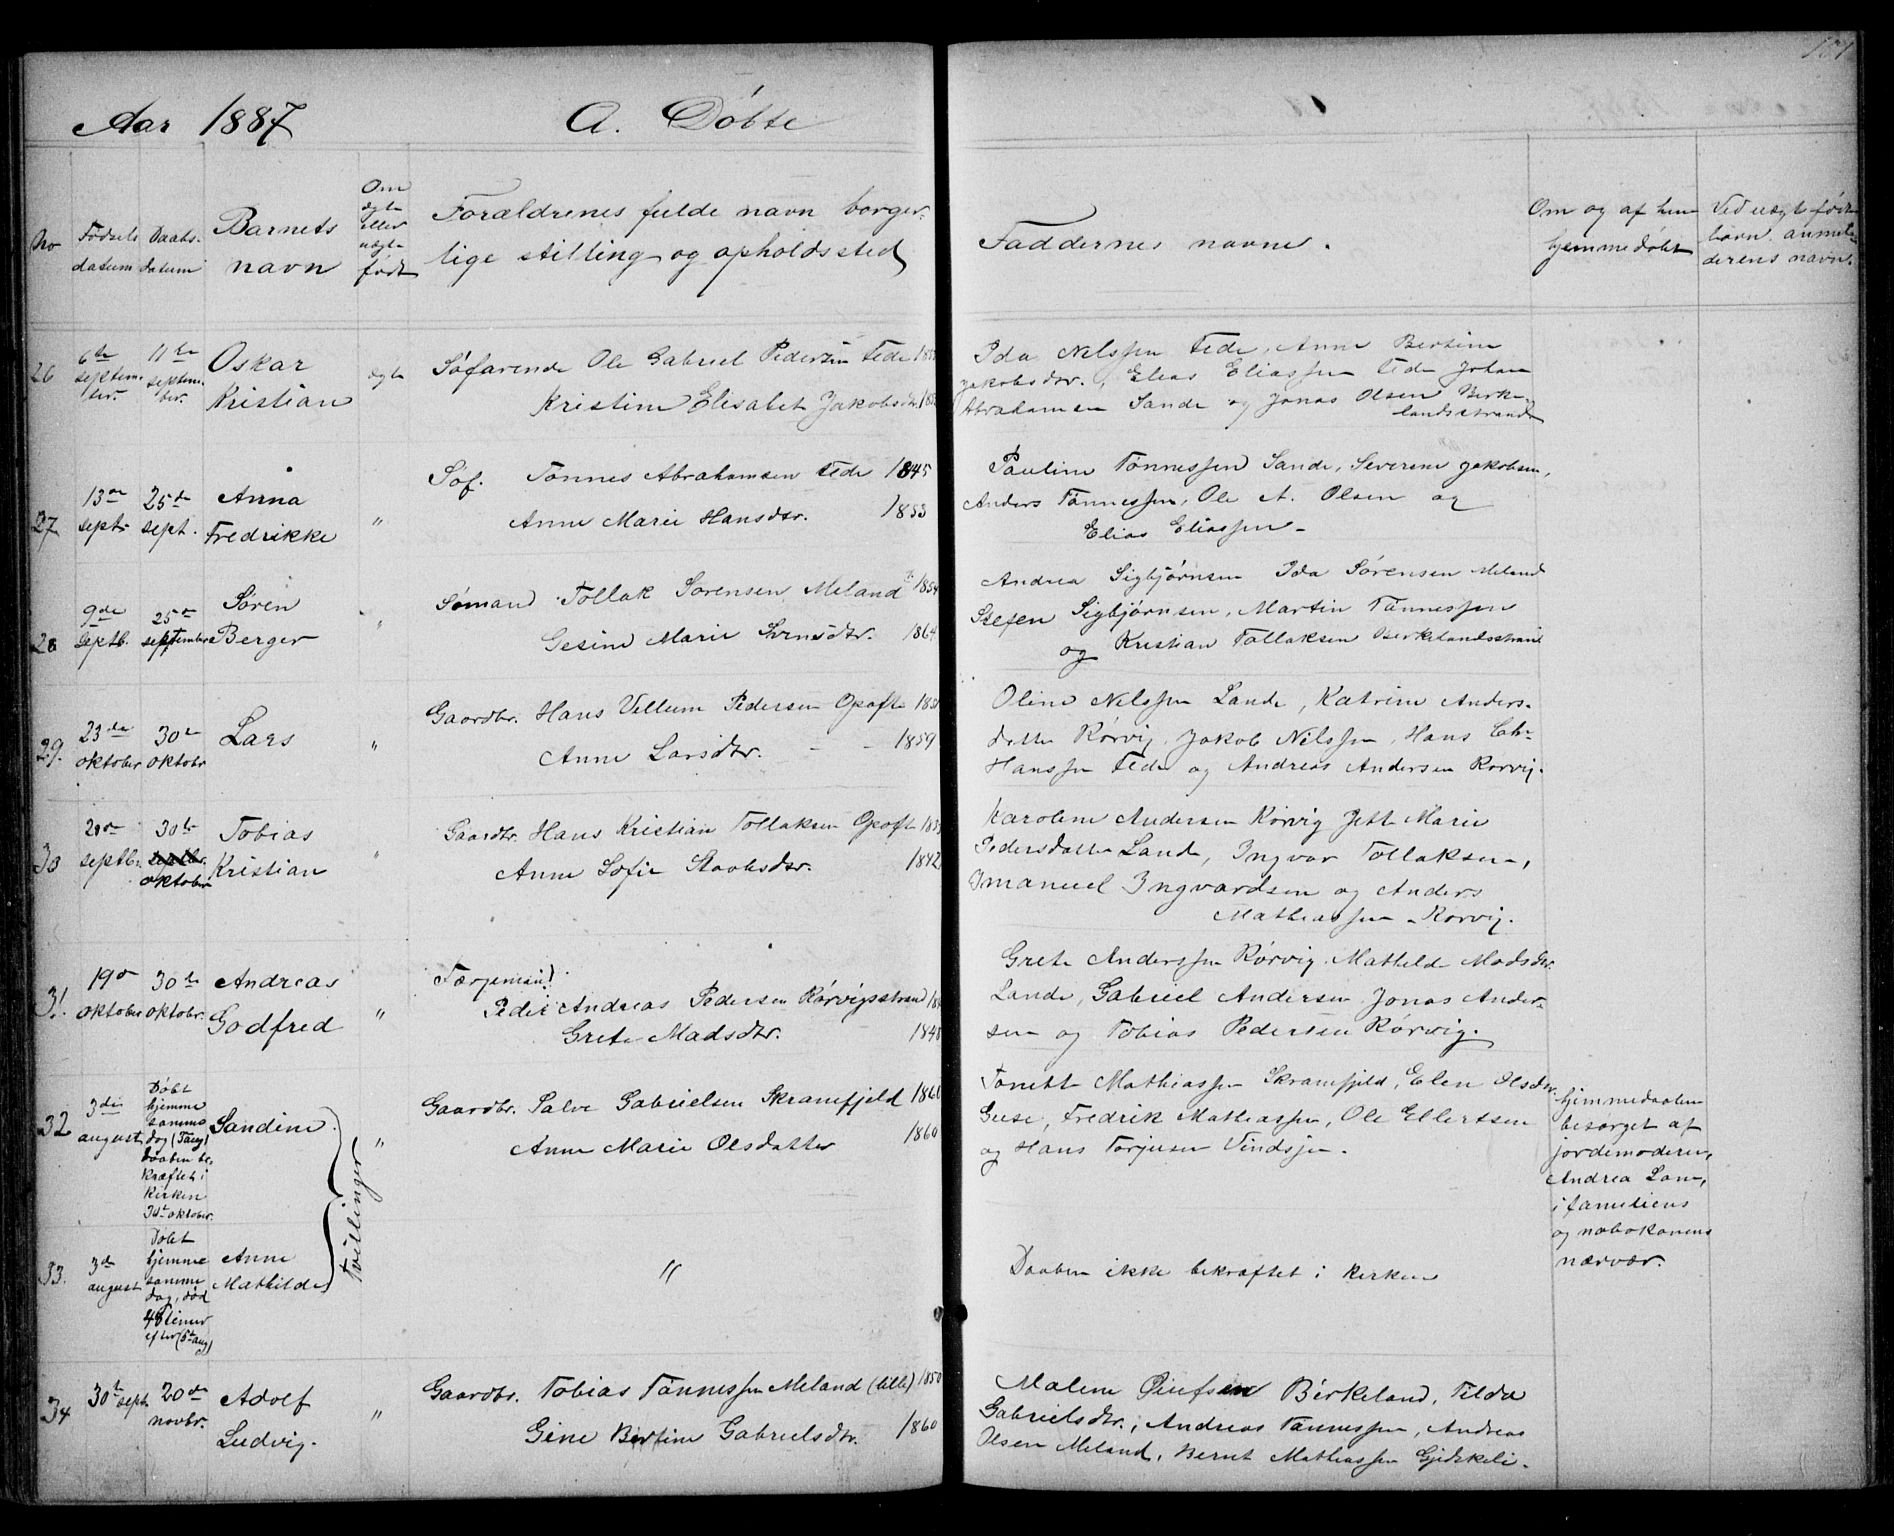 Aar 1887 A. Döbte
No
Födsels
datum
Daabs-
datum
Barnets
navn
Om
ægte
eller
uægte
født
Forældrenes fulde navn borger-
lige stilling og opholdssted
Faddernes navne.
Om og af hvem
hjemmedøbt
Ved uægte født
barn anmel-
derens navn.
26
6te
septem-
ber.
11te
septem-
ber.
Oskar
Kristian
ægte
Søfarende Ole Gabriel Pedersen Fede
Kristine Elisabet Jakobsdtr.
Ida Nelssen Fede, Anne Bertine
Jakobsdtr., Elias Eliassen Fede Johan
Abrahamsen Sande og Jonas Olsen Birke-
landsstrand
27
13de
septr
25de
sept.
Anna
Fredrikke
"
Søf. Tønnes Abrahamsen Fede 1845
Anne Marie Hansdtr. 1853
Pauline Tønnessen Sande, Severine Jakobsen,
Anders Tønnessen, Ole A. Olsen og
Elias Eliassen -
28
9de
Septb.
25de
september
Søren
Berger
"
Sømand Tollak Sørensen Meland 1854
Gesine Marie Svensdtr. 1864
Andrea Sigbjørnsen Ida Sørensen Meland
Stefen Sigbjørnsen, Martin Tønnessen
og Kristian Tollaksen Birkelandsstrand
29.
23de
oktober
30te
oktobr
Lars
"
Gaardbr. Hans Villum Pedersen Opofte
Anne Larsdtr. - - 1859
Oline Nilssen Lande, Katrine Anders-
datter Rørvig, Jakob Nilssen, Hans Chr
Hanssen Fede og Andreas Andersen Rørvig.
30
septbr.
30te
septbr.
oktober
Tobias
Kristian
"
Gaardbr. Hans Kristian Tollaksen Opofte
Anne Sofie Staalesdtr. 1842
Karoline Andersen Rørvig Jette Marie
Pedersdatter Lande, Ingvar Tollaksen,
Imanuel Ingvardsen og Anders
Mathiassen - Rørvig.
31.
19de
oktober
30te
oktobr.
Andreas
Godfred
"
Færjemand
Peder Andreas Pedersen Rørvigsstrand
Grete Madsdtr.
Grete Anderssen Rørvig Mathilde Madsdtr.
Lande, Gabriel Andersen, Jonas Ander-
sen og Tobias Pedersen Rørvig.
32
3die
august
Døbt
hjemme
samme
dag (3aug)
Daaben be-
kræftet i
kirken
oktober.
Sandine
Tvillinger
"
Gaardbr. Salve Gabrielsen Skranefjeld
Anne Marie Olsdatter 1860
Tonette Mathiassen Skranefjeld, Elen Olsdtr.
Geese, Fredrik Mathiassen, Ole Ellertsen
og Hans Torjusen
Hjemmedaaben
besørget af
jordemoderen,
Andrea
i familiens
og nabokonens
nærvær.
33.
3die
august
Døbt
hjemme
samme
dag, død
48 timer
efter (5te aug)
Anne
Mathilde
"
Daaben ikke bekræftet i kirken
34
30te sept.
20de
novbr.
Adolf
Ludvig.
"
Gaardbr. Tobias Tønnessen Meland (lille) 1850
Gine Bertine Gabrielsdtr. 1860
Malene Birkeland, Tilda
Gabrielsdtr., Andreas Tønnessen, Andreas
Olsen Meland, Bernt Mathiassen